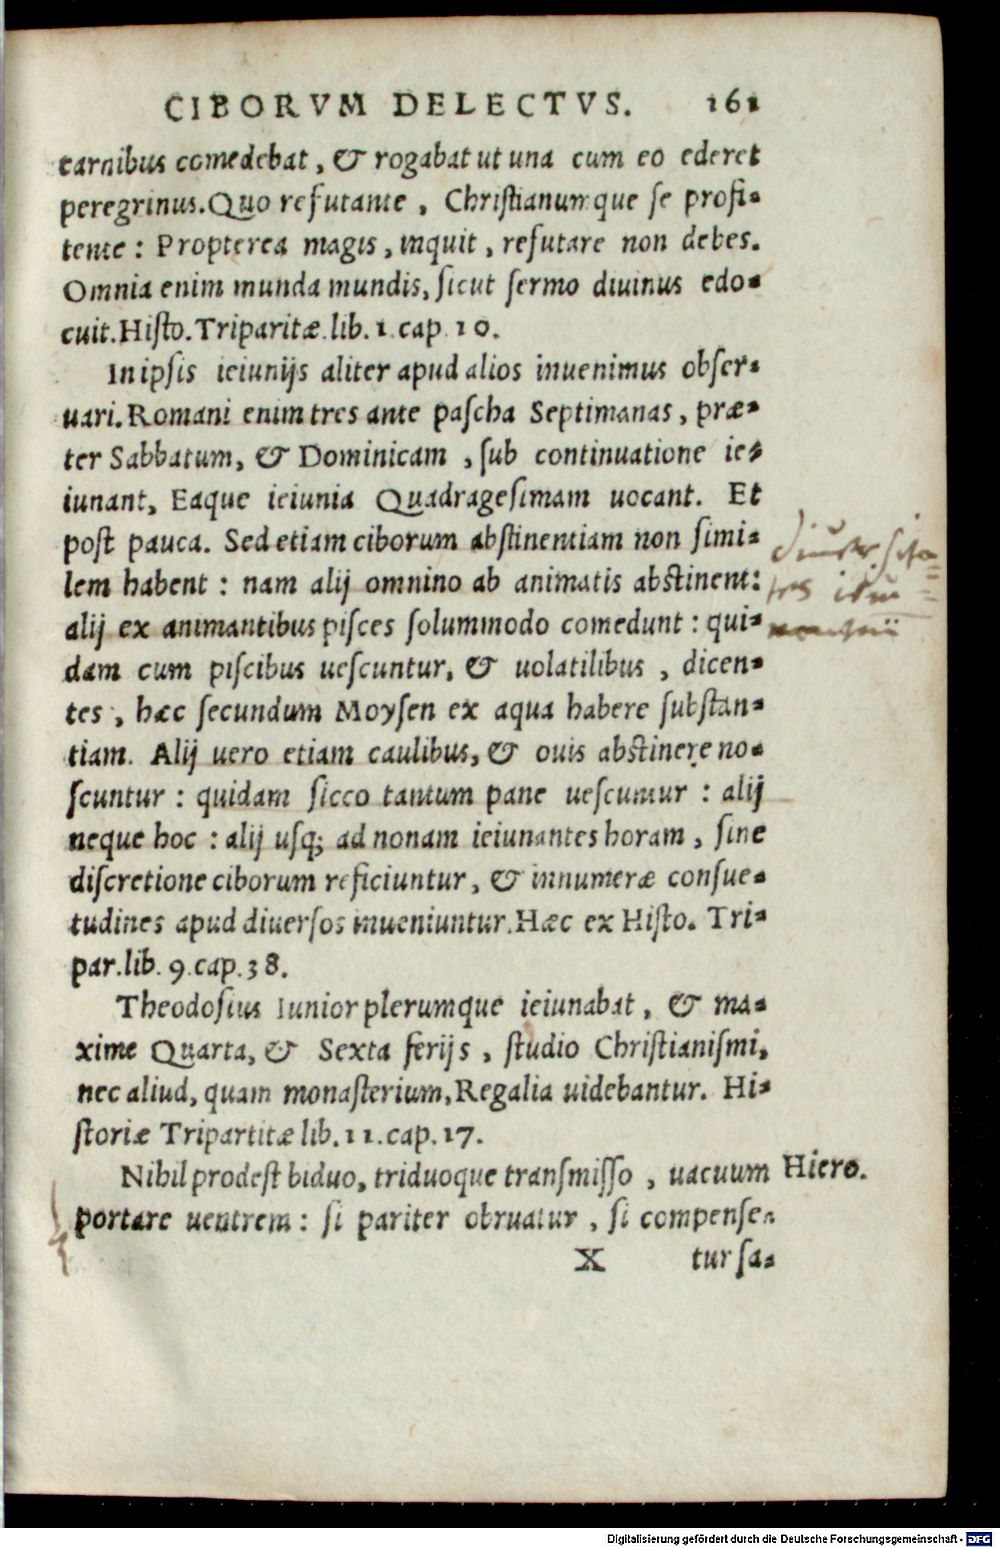 CIBORVM DELECTVS. 161
carnibus comedebat, & rogabat ut una cum eo ederet
peregrinus. Quo refutante, Christianumque se profi-
tente: Propterea magis, inquit, refutare non debes.
Omnia enim munda mundis, sicut sermo diuinus edo-
cuit. Histo. Triparitæ. lib. 1. cap. 10.
In ipsis ieiunijs aliter apud alios inuenimus obser-
uari. Romani enim tres ante pascha Septimanas, præ-
ter Sabbatum, & Dominicam, sub continuatione ie-
iunant, Eaque ieiunia Quadragesimam uocant. Et
post pauca. Sed etiam ciborum abstinentiam non simi-
lem habent: nam alij omnino ab animatis abstinent:
alij ex animantibus pisces solummodo comedunt: qui-
dam cum piscibus uescuntur, & uolatilibus, dicen-
tes, hæc secundum Moysen ex aqua habere substan-
tiam. Alij uero etiam caulibus, & ouis abstinere no-
scuntur: quidam sicco tantum pane uescuntur: alij
neque hoc: alij usq; ad nonam ieiunantes horam, sine
discretione ciborum reficiuntur, & innumeræ consue-
tudines apud diuersos inueniuntur. Hæc ex Histo. Tri-
par. lib. 9. cap. 38.
Theodosius Iunior plerumque ieiunabat, & ma-
xime Quarta, & Sexta ferijs, studio Christianismi,
nec aliud, quam monasterium, Regalia uidebantur. Hi-
storiæ Tripartitæ lib. 11. cap. 17.
Nihil prodest biduo, triduoque transmisso, uacuum
Hiero.
portare uentrem: si pariter obruatur, si compense-
X tur sa-
Digitalisierung gefördert durch die Deutsche Forschungsgemeinschaft - DFG